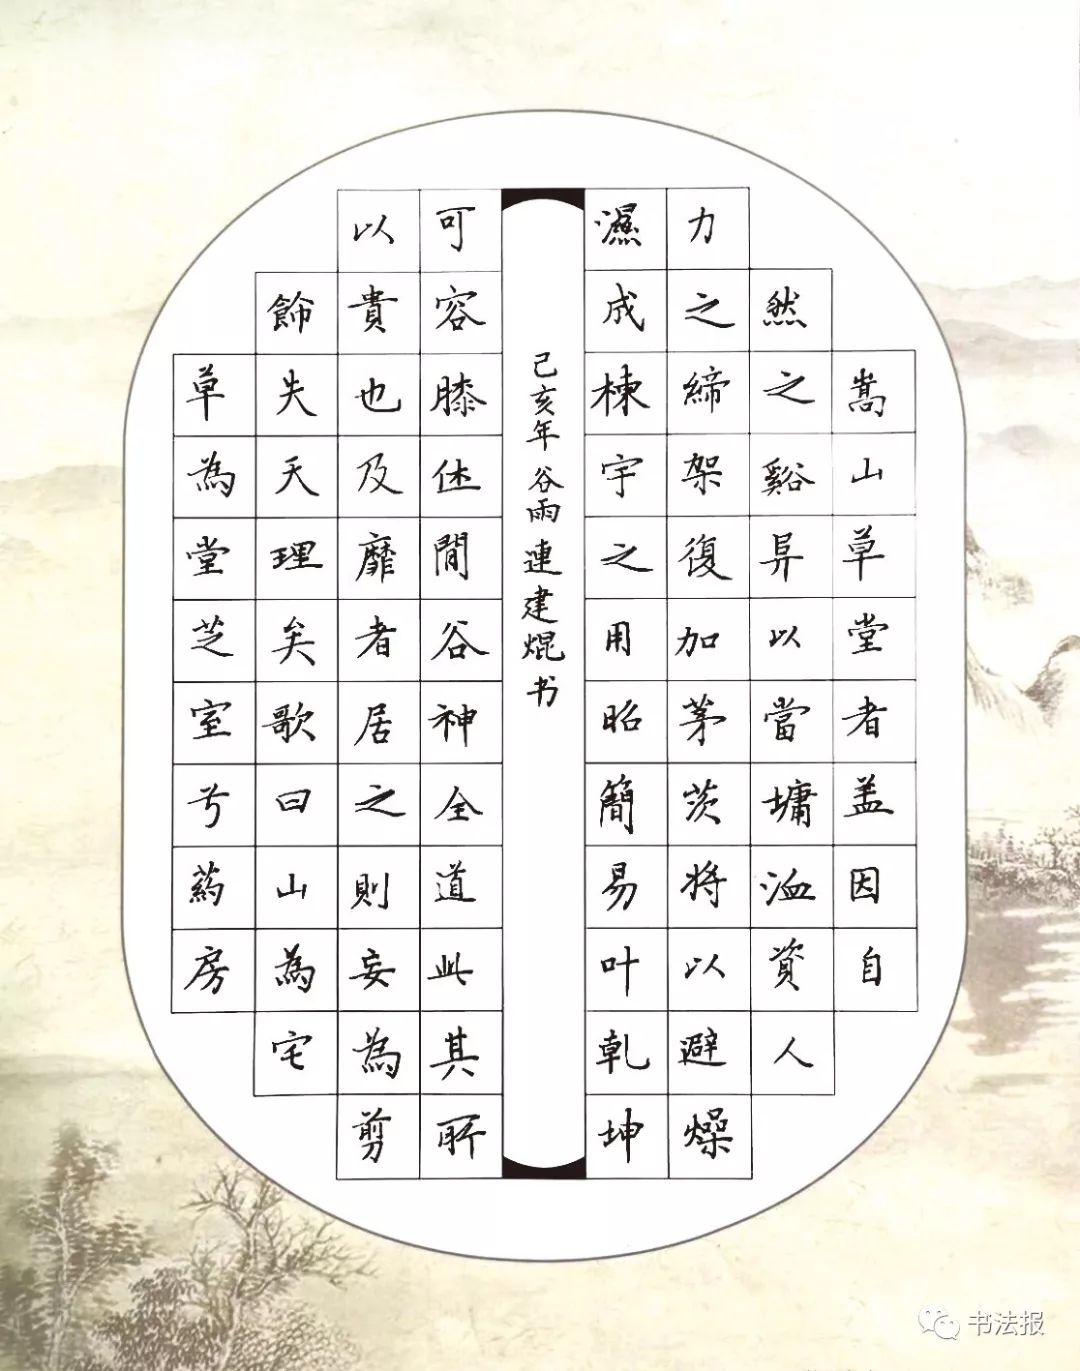 嵩山草堂者盖因自
然之谿异以當墉洫資人
力之締架復加茅茨将以避燥
濕成棟宇之用昭簡易叶乾坤
可容膝休閒谷神全道此其所
以貴也及靡者居之則妄為剪
飾失天理矣歌曰山為宅
草為堂芝室兮药房
己亥年谷雨連建焜书
书法报